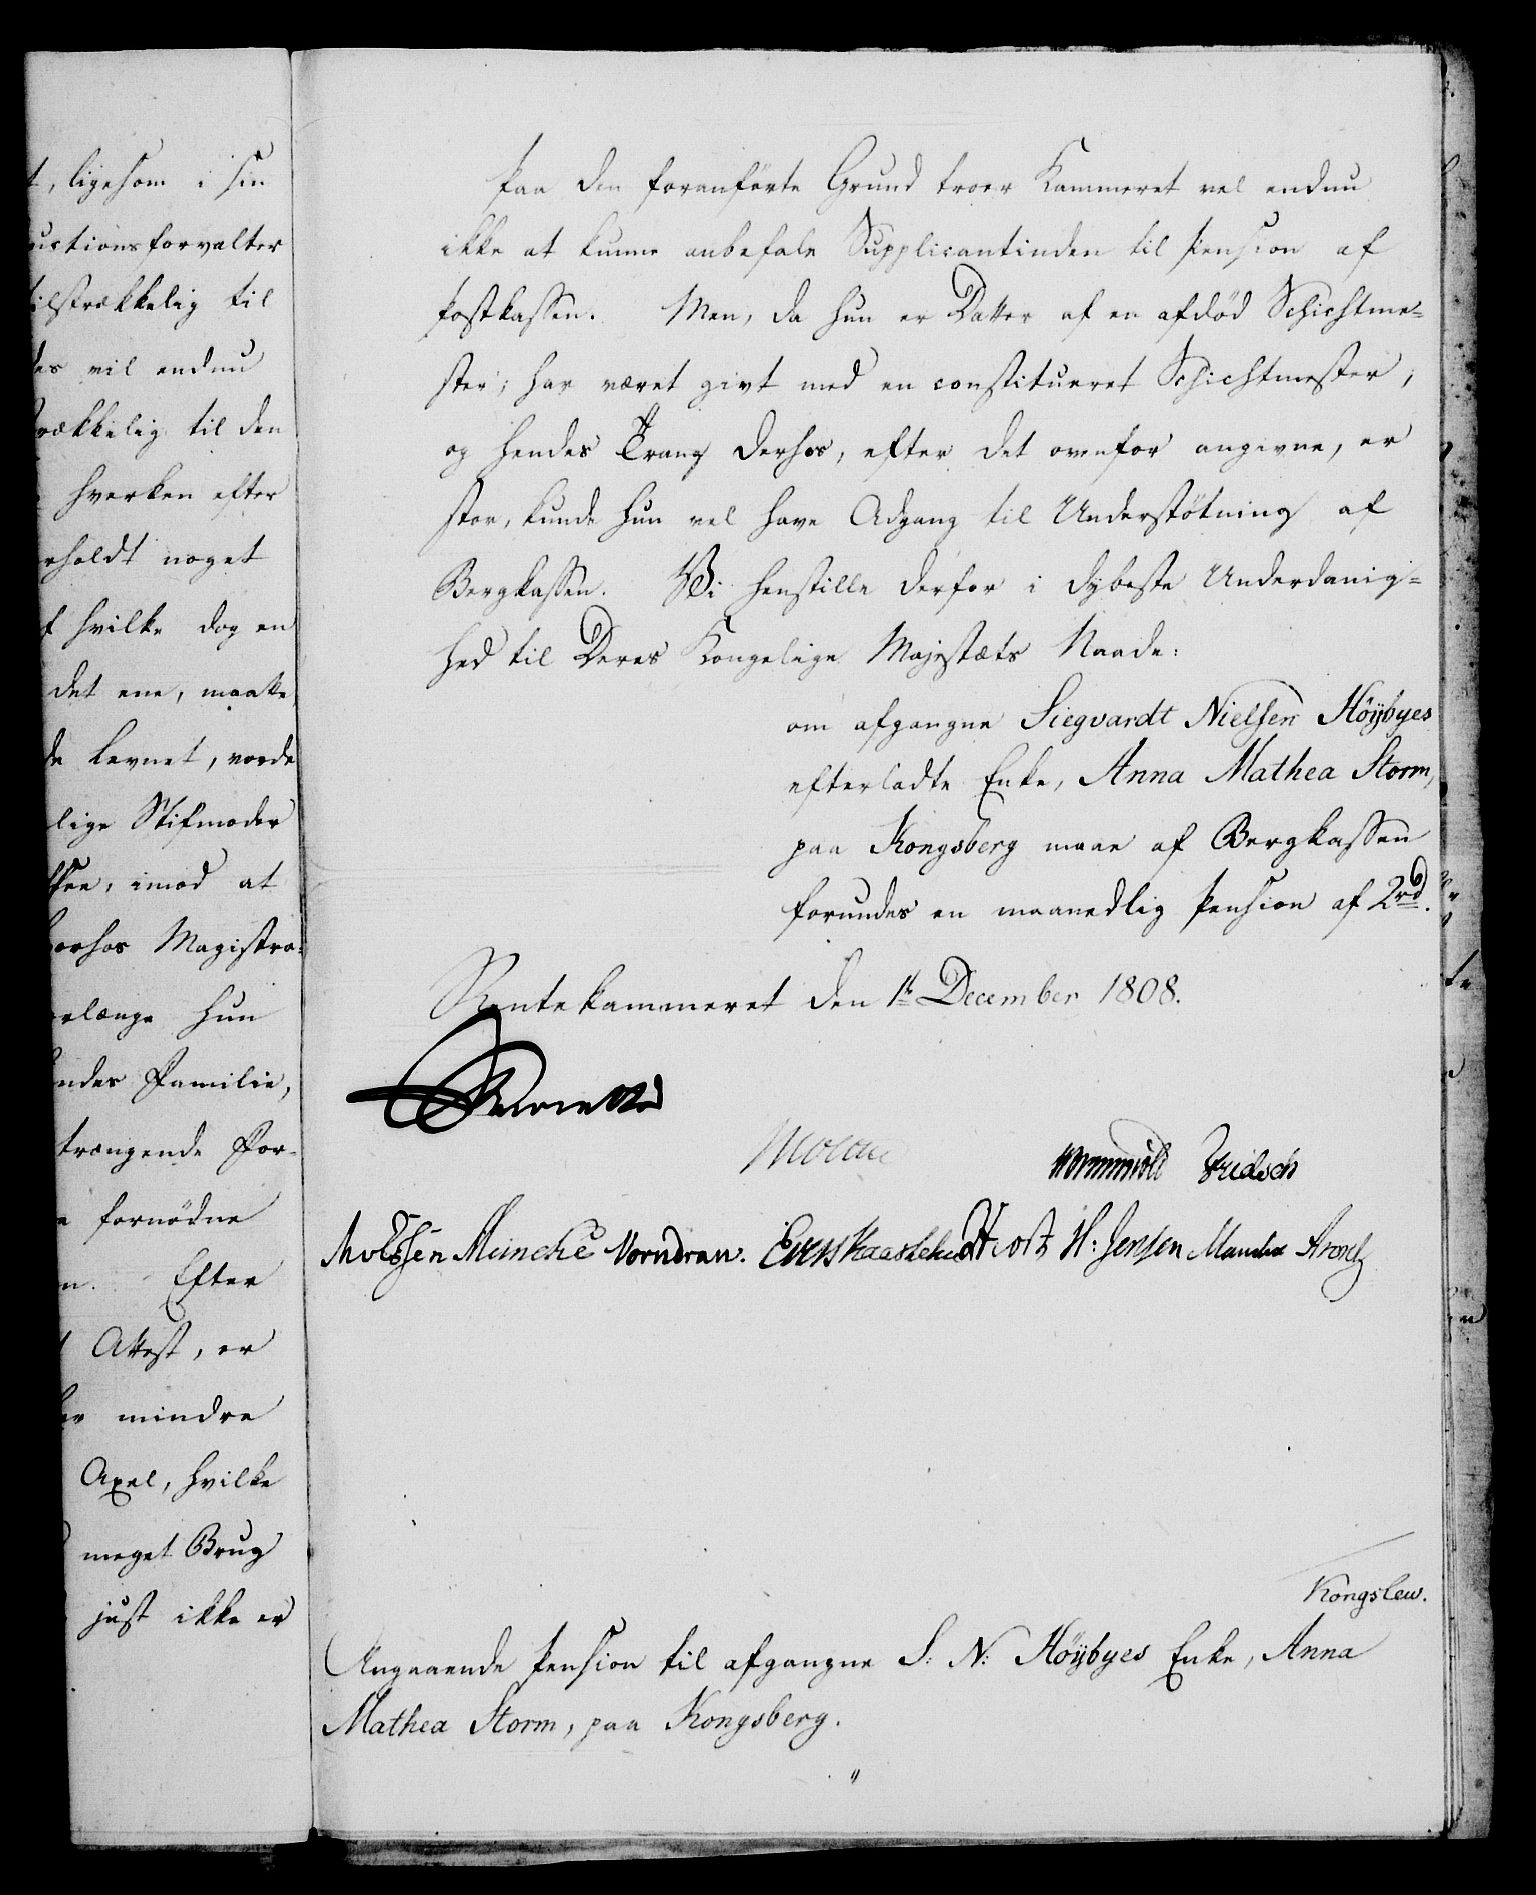 t, ligesom i sin
uctionsforvalter
tilstrækkelig til
des vil endnu
rækkelig til den
hverken efter
rholdt noget
f hvilke dog en
det ene, maatte
de levnet, vorde
lige Stifmoder
imod at
Magistra-
rlænge hun
endes Familie,
trængende For-
fornødne
n. Efter
Attest, er
mindre
Axel, hvilke
meget Brug
just ikke er
Paa den foranførte Grund troer Kammeret vel endnu
ikke at kunne anbefale Supplicantinden til Pension af
Postkassen. Men, da hun er Datter af en afdød Schichtme-
ster; har været givt med en constitueret Schichtmester;
og hendes Trang derhos, efter det ovenfor angivne, er
stor, kunde hun vel have Adgang til Understøtning af
Bergkassen. Vi henstille derfor i dybeste Underdanig-
hed til Deres Kongelige Majestæts Naade:
om afgangne Siegvardt Nielsen Höÿbyes
efterladte Enke, Anna Mathea Storm,
paa Kongsberg maae af Bergkassen
forundes en maanedlig Pension af 2rd.
Rentekammeret den 1te December 1808.
Wormskiold Fridsch
Meinche Vorndran. Hiort H: Jensen Manthe Arntz
Kongslew.
Angaaende Pension til afgangne S: N: Höÿbyes Enke, Anna
Mathea Storm, paa Kongsberg.
"